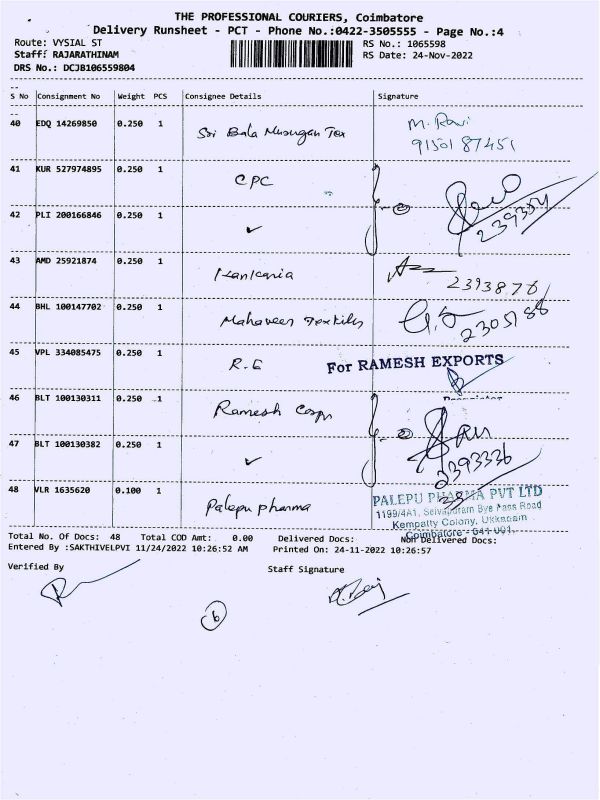 THE PROFESSIONAL COURIERS, Coimbatore
Delivery Runsheet - PCT - Phone No.:0422-3505555 - Page No.:4
Route: VYSIAL ST RS No.: 1065598
Staff: RAJARATHINAM RS Date: 24-Nov-2022
DRS No.: DCJB106559804
S No Consignment No Weight PCS Consignee Details Signature
40 EDQ 14269850 0.250 1 Sri Bala Murugan Tex M. Ravi
9150187451
41 KUR 527974895 0.250 1 CPC
42 PLI 200166846 0.250 1 ✓ 239354
43 AMD 25921874 0.250 1 Kankaria 2393876
44 BHL 100147702 0.250 1 Mahaveer Textiles 2305188
45 VPL 334085475 0.250 1 R.E For RAMESH EXPORTS
46 BLT 100130311 0.250 1 Ramesh Corpn
47 BLT 100130382 0.250 1 ✓ 2393336
48 VLR 1635620 0.100 1 Palepu pharma PALEPU PHARMA PVT LTD
1199/4A1, Selvapuram Bye Pass Road
Kempatty Colony, Ukkadam
Coimbatore - 641 001.
Total No. Of Docs: 48 Total COD Amt: 0.00 Delivered Docs: Non Delivered Docs:
Entered By :SAKTHIVELPVI 11/24/2022 10:26:52 AM Printed On: 24-11-2022 10:26:57
Verified By Staff Signature
6